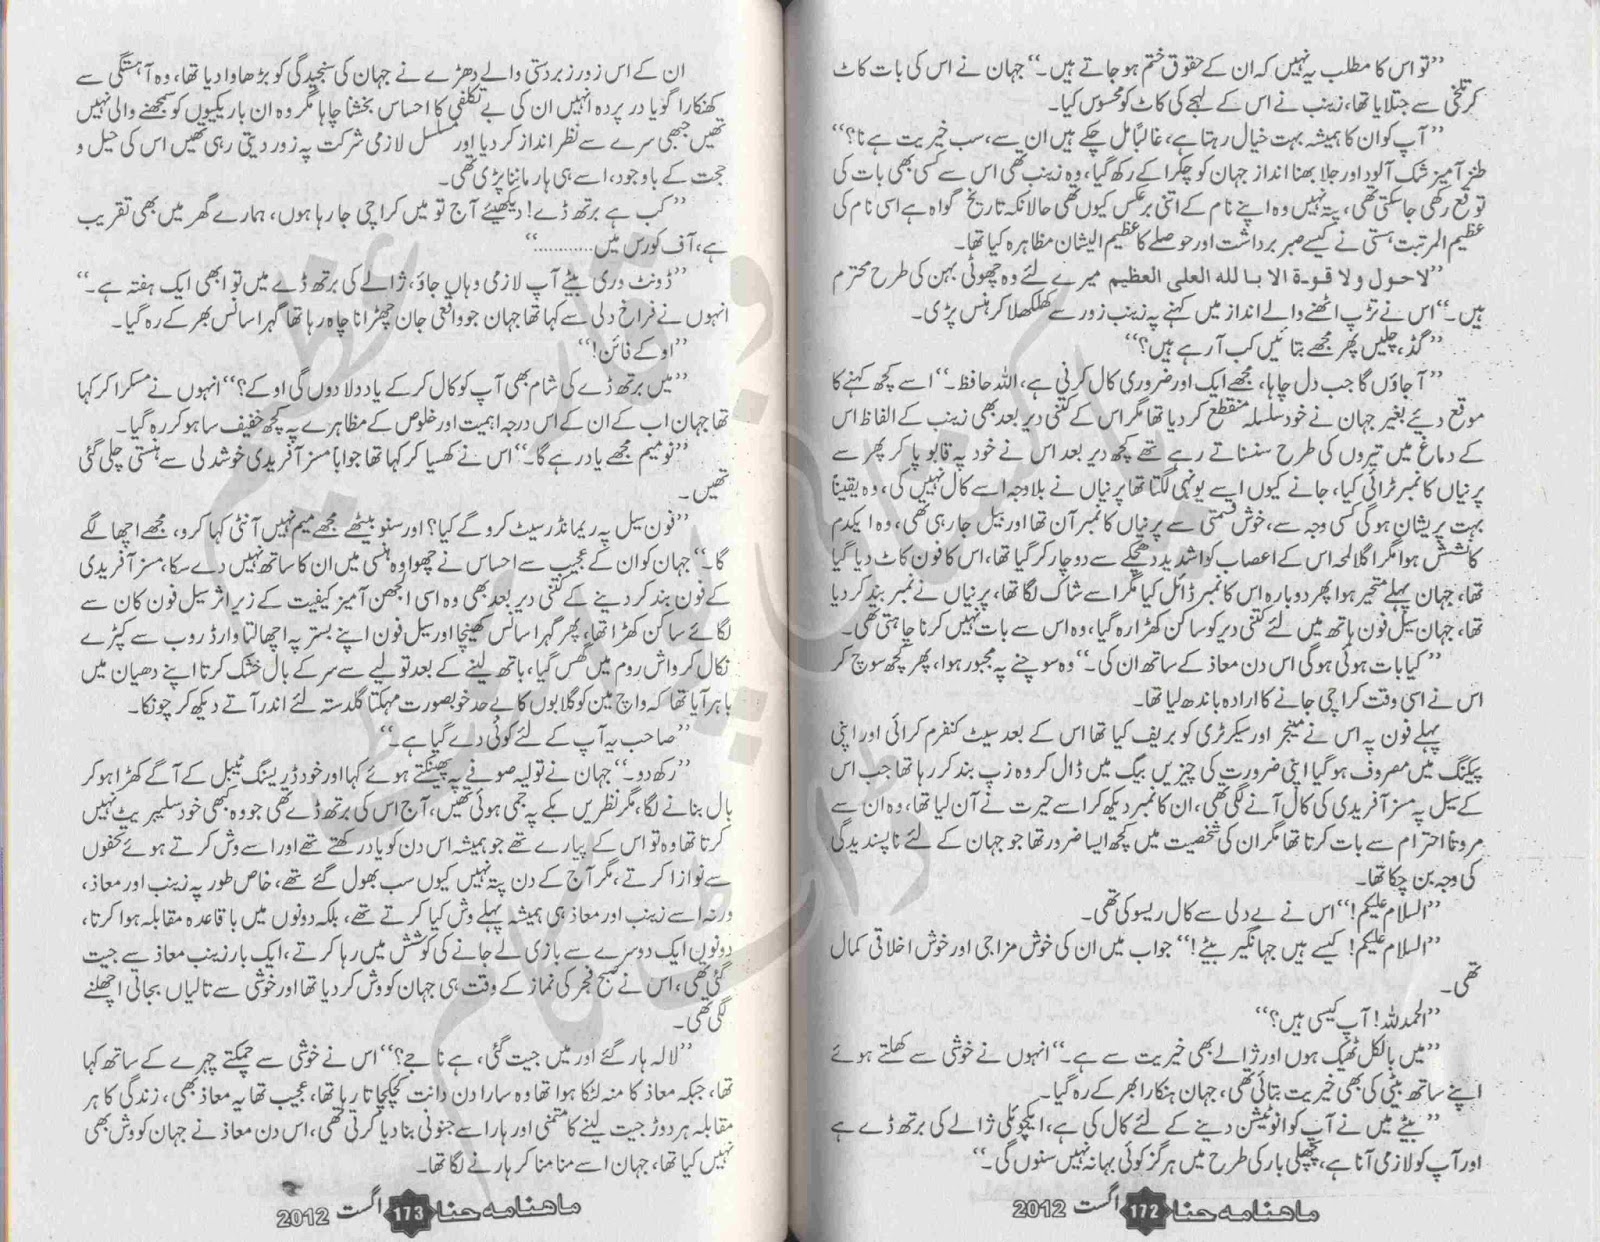 ”تو اس کا مطلب یہ نہیں کہ ان کے حقوق ختم ہو جاتے ہیں۔“ جہان نے اس کی بات کاٹ
کر تلخی سے جتلایا تھا، زینب نے اس کے لہجے کی کاٹ کو محسوس کیا۔
”آپ کو ان کا ہمیشہ بہت خیال رہتا ہے، غالباً مل چکے ہیں ان سے، سب خیریت ہے نا؟“
طنز آمیز شک آلود اور جلا بھنا انداز جہان کو چکرا کے رکھ گیا، وہ زینب تھی اس سے کسی بھی بات کی
توقع رکھی جا سکتی تھی، پتہ نہیں وہ اپنے نام کے اتنی برعکس کیوں تھی حالانکہ تاریخ گواہ ہے اسی نام کی
عظیم المرتبت ہستی نے کیسے صبر برداشت اور حوصلے کا عظیم الیشان مظاہرہ کیا تھا۔
”لاحول ولا قوۃ الا باللہ العلی العظیم میرے لئے وہ چھوٹی بہن کی طرح محترم
ہیں۔“ اس نے تڑپ اٹھنے والے انداز میں کہنے پہ زینب زور سے کھلکھلا کر ہنس پڑی۔
”گڈ، چلیں پھر مجھے بتائیں کب آ رہے ہیں؟“
”آ جاؤں گا جب دل چاہا، مجھے ایک اور ضروری کال کرنی ہے، اللہ حافظ۔“ اسے کچھ کہنے کا
موقع دیئے بغیر جہان نے خود سلسلہ منقطع کر دیا تھا مگر اس کے کتنی دیر بعد بھی زینب کے الفاظ اس
کے دماغ میں تیروں کی طرح سنسناتے رہے تھے کچھ دیر بعد اس نے خود پہ قابو پا کر پھر سے
پرنیاں کا نمبر ٹرائی کیا، جانے کیوں اسے یونہی لگتا تھا پرنیاں نے بلاوجہ اسے کال نہیں کی، وہ یقیناً
بہت پریشان ہو گی کسی وجہ سے، خوش قسمتی سے پرنیاں کا نمبر آن تھا اور بیل جا رہی تھی، وہ ایکدم
کانشس ہوا مگر اگلا لمحہ اس کے اعصاب کو شدید دھچکے سے دوچار کر گیا تھا، اس کا فون کاٹ دیا گیا
تھا، جہان پہلے متحیر ہوا پھر دوبارہ اس کا نمبر ڈائل کیا مگر اسے شاک لگا تھا، پرنیاں نے نمبر بند کر دیا
تھا، جہان سیل فون ہاتھ میں لئے کتنی دیر کو ساکن کھڑا رہ گیا، وہ اس سے بات نہیں کرنا چاہتی تھی۔
”کیا بات ہوئی ہو گی اس دن معاذ کے ساتھ ان کی۔“ وہ سوچنے پہ مجبور ہوا، پھر کچھ سوچ کر
اس نے اسی وقت کراچی جانے کا ارادہ باندھ لیا تھا۔
پہلے فون پہ اس نے مینجر اور سیکرٹری کو بریف کیا تھا اس کے بعد سیٹ کنفرم کرائی اور اپنی
پیکنگ میں مصروف ہو گیا اپنی ضرورت کی چیزیں بیگ میں ڈال کر وہ زپ بند کر رہا تھا جب اس
کے سیل پہ مسز آفریدی کی کال آنے لگی تھی، ان کا نمبر دیکھ کر اسے حیرت نے آن لیا تھا، وہ ان سے
مروتاً احترام سے بات کرتا تھا مگر ان کی شخصیت میں کچھ ایسا ضرور تھا جو جہان کے لئے ناپسندیدگی
کی وجہ بن چکا تھا۔
”السلام علیکم!“ اس نے بے دلی سے کال ریسو کی تھی۔
”السلام علیکم! کیسے ہیں جہانگیر بیٹے!“ جواب میں ان کی خوش مزاجی اور خوش اخلاقی کمال
تھی۔
”الحمدللہ! آپ کیسی ہیں؟“
”میں بالکل ٹھیک ہوں اور ژالے بھی خیریت سے ہے۔“ انہوں نے خوشی سے کھلتے ہوئے
اپنے ساتھ بیٹی کی بھی خیریت بتائی تھی، جہان ہنکارا بھر کے رہ گیا۔
”بیٹے میں نے آپ کو انوٹیشن دینے کے لئے کال کی ہے، ایکچوئلی ژالے کی برتھ ڈے ہے
اور آپ کو لازمی آنا ہے، پچھلی بار کی طرح میں ہرگز کوئی بہانہ نہیں سنوں گی۔“
ماهنامه حنا 172 اگست 2012
ان کے اس زور زبردستی والے دھڑے نے جہان کی سنجیدگی کو بڑھاوا دیا تھا، وہ آہستگی سے
کھنکارا گویا در پردہ انہیں ان کی بے تکلفی کا احساس بخشا چاہا مگر وہ ان باریکیوں کو سمجھنے والی نہیں
تھیں جبھی سرے سے نظر انداز کر دیا اور مسلسل لازمی شرکت پہ زور دیتی رہی تھیں اس کی حیل و
حجت کے باوجود، اسے ہی ہار ماننا پڑی تھی۔
”کب ہے برتھ ڈے! دیکھیئے آج تو میں کراچی جا رہا ہوں، ہمارے گھر میں بھی تقریب
ہے، آف کورس میں..........“
”ڈونٹ وری بیٹے آپ لازمی وہاں جاؤ، ژالے کی برتھ ڈے میں تو ابھی ایک ہفتہ ہے۔“
انہوں نے فراخ دلی سے کہا تھا جہان جو واقعی جان چھڑانا چاہ رہا تھا گہرا سانس بھر کے رہ گیا۔
”اوکے فائن!“
”میں برتھ ڈے کی شام بھی آپ کو کال کر کے یاد دلا دوں گی اوکے؟“ انہوں نے مسکرا کر کہا
تھا جہان اب کے ان کے اس درجہ اہمیت اور خلوص کے مظاہرے پہ کچھ خفیف سا ہو کر رہ گیا۔
”نو میم مجھے یاد رہے گا۔“ اس نے کھسیا کر کہا تھا جواباً مسز آفریدی خوشدلی سے ہنستی چلی گئی
تھیں۔
”فون سیل پہ ریمائنڈر سیٹ کرو گے کیا؟ اور سنو بیٹھے مجھے میم نہیں آنٹی کہا کرو، مجھے اچھا لگے
گا۔“ جہان کو ان کے عجیب سے احساس نے چھوا وہ ہنسی میں ان کا ساتھ نہیں دے سکا، مسز آفریدی
کے فون بند کر دینے کے کتنی دیر بعد بھی وہ اسی الجھن آمیز کیفیت کے زیر اثر سیل فون کان سے
لگائے ساکن کھڑا تھا، پھر گہرا سانس کھینچا اور سیل فون اپنے بستر پہ اچھالتا وارڈ روب سے کپڑے
نکال کر واش روم میں گھس گیا، باتھ لینے کے بعد تولیے سے سر کے بال خشک کرتا اپنے دھیان میں
باہر آیا تھا کہ واچ مین کو گلابوں کا بے حد خوبصورت مہکتا گلدستہ لئے اندر آتے دیکھ کر چونکا۔
”صاحب یہ آپ کے لئے کوئی دے گیا ہے۔“
”رکھ دو۔“ جہان نے تولیہ صوفے پہ پھینکتے ہوئے کہا اور خود ڈریسنگ ٹیبل کے آگے کھڑا ہو کر
بال بنانے لگا، مگر نظریں بکے پہ جمی ہوئی تھیں، آج اس کی برتھ ڈے تھی جو وہ کبھی خود سلیبریٹ نہیں
کرتا تھا وہ تو اس کے پیارے تھے جو ہمیشہ اس دن کو یاد رکھتے تھے اور اسے وش کرتے ہوئے تحفوں
سے نوازا کرتے، مگر آج کے دن پتہ نہیں کیوں سب بھول گئے تھے، خاص طور پہ زینب اور معاذ،
ورنہ اسے زینب اور معاذ ہی ہمیشہ پہلے وش کیا کرتے تھے، بلکہ دونوں میں باقاعدہ مقابلہ ہوا کرتا،
دونوں ایک دوسرے سے بازی لے جانے کی کوشش میں رہا کرتے، ایک بار زینب معاذ سے جیت
گئی تھی، اس نے صبح فجر کی نماز کے وقت ہی جہان کو وش کر دیا تھا اور خوشی سے تالیاں بجاتی اچھلنے
لگی تھی۔
”لالہ ہار گئے اور میں جیت گئی، ہے نا جے؟“ اس نے خوشی سے چمکتے چہرے کے ساتھ کہا
تھا، جبکہ معاذ کا منہ لٹکا ہوا تھا وہ سارا دن دانت کچکچاتا رہا تھا، عجیب تھا یہ معاذ بھی، زندگی کا ہر
مقابلہ ہر دوڑ جیت لینے کا متمنی اور ہار اسے جنونی بنا دیا کرتی تھی، اس دن معاذ نے جہان کو وش بھی
نہیں کیا تھا، جہان اسے منا منا کر ہارنے لگا تھا۔
ماهنامه حنا 173 اگست 2012